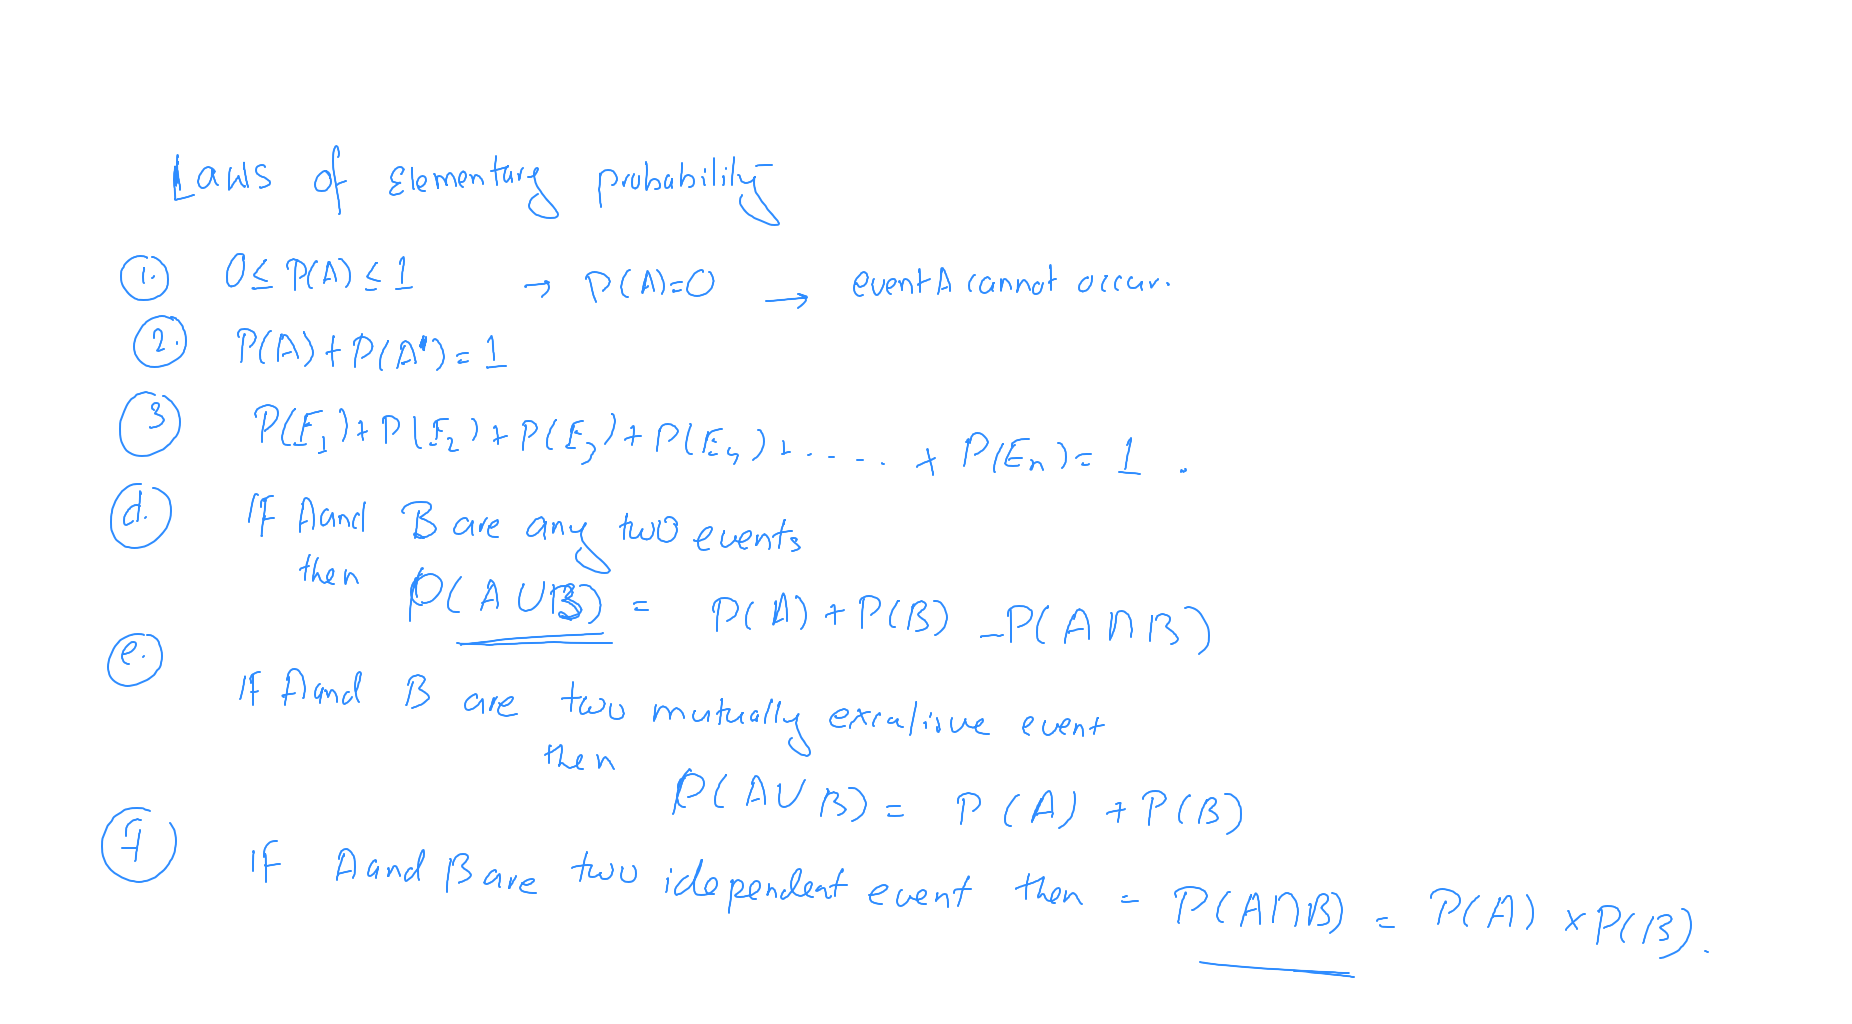 Laws of Elementary probability
1. 0 ≤ P(A) ≤ 1 → P(A)=0 → event A cannot occur.
2. P(A) + P(A') = 1
3 P(E₁) + P(E₂) + P(E₃) + P(E₄) + ..... + P(Eₙ) = 1.
d. If A and B are any two events
then P(A∪B) = P(A) + P(B) - P(A∩B)
e.
If A and B are two mutually excalisve event
then P(A∪B) = P(A) + P(B)
f If A and B are two idependent event then = P(A∩B) = P(A) × P(B).